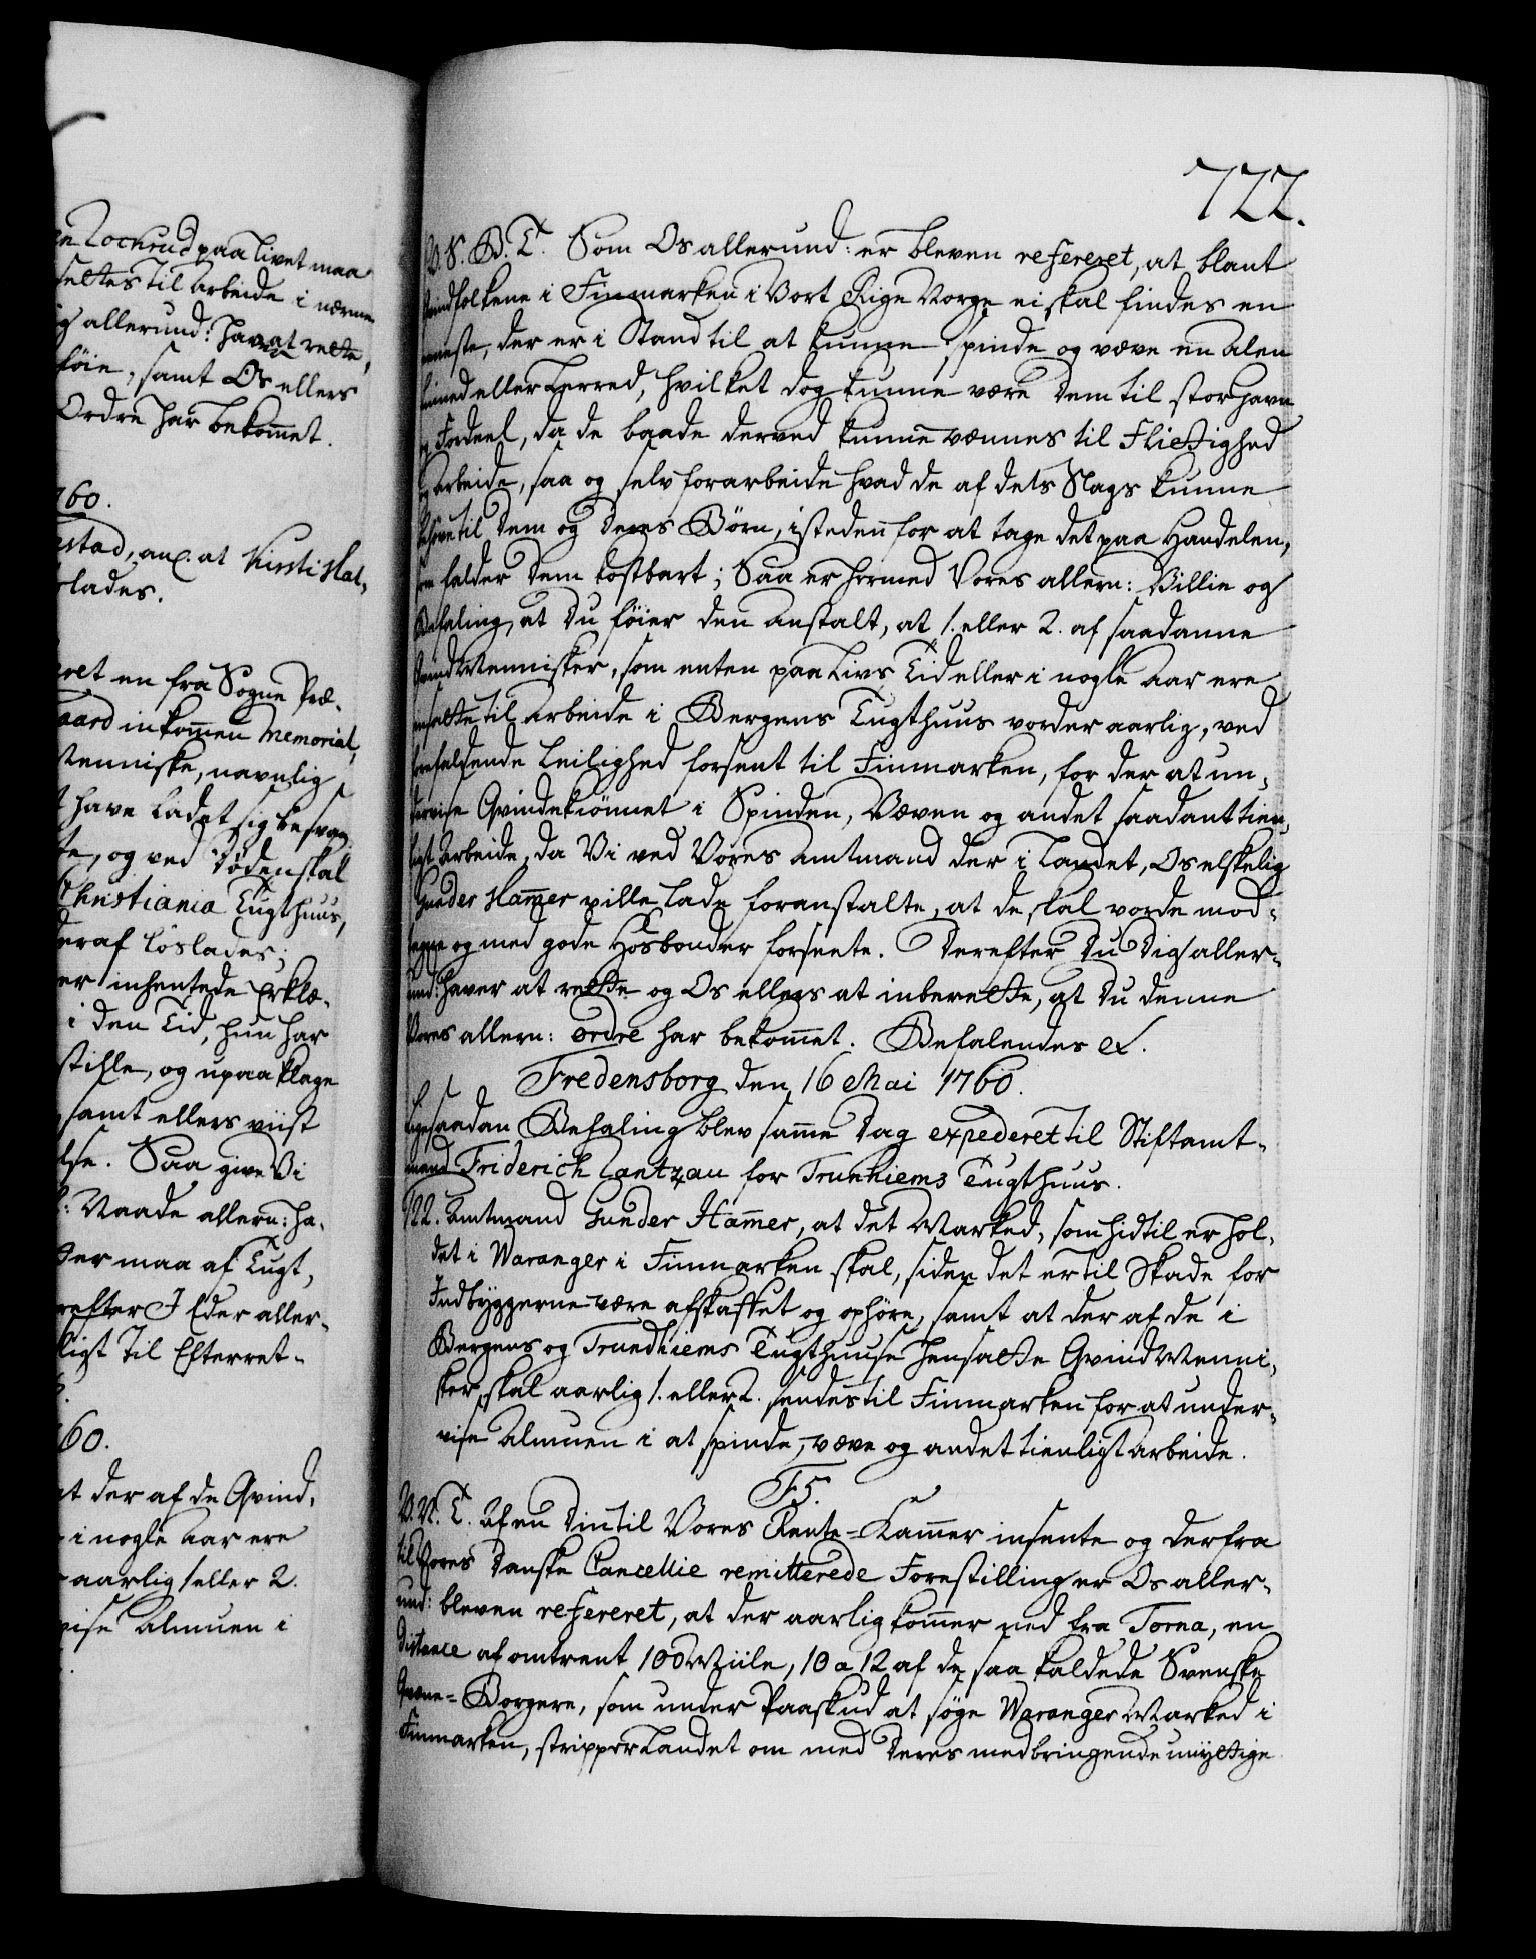 en Lochrud paa Livet maa
settes til Arbeide i nærme
allerund: have at rette,
føie, samt Os ellers
Ordre har bekommet.
760.
estad, anl. at Kirsti Hal-
slades.
eret en fra Sogne Præ-
gaard inkommen Memorial,
Menniske, navnlig
have ladet sig besvan
og ved Døden skal
Christiania Tugthuus,
deraf løslades;
er inhentede Erklæ-
i den Tid, hun har
stille, og upaaklage
samt ellers viist
lse. Saa give Vi
Naade allern: ha-
der maa af Tugt,
refter I Eder aller-
ligst til Efterret-
60.
at der af de Qvind,
i nogle Aar ere
aarlig 1 eller 2.
vise Almuen i
722.
V. S. G. T. Som Os allerund: er bleven refereret, at blant
Qvindfolkene i Finmarken i Vort Rige Norge ei skal findes en
eneste, der er i Stand til at kunne spinde og væve en Alen
Linned eller Lerred, hvilket dog kunne være dem til stor Gavn
og Fordeel, da de baade derved kunne vænnes til Flittighed
og Arbeide, saa og selv forarbeide hvad de af dets Slags kunne
behøve til dem og deres Børn, isteden for at tage det paa Handelen,
som falder dem kostbart; Saa er hermed Vores allern: Villie og
Befaling, at Du føier den Anstalt, at 1. eller 2. af saadanne
Qvind Mennisker, som enten paa Livs Tid eller i nogle Aar ere
insatte til Arbeide i Bergens Tugthuus vorder aarlig, ved
forefaldende Leilighed forsent til Finmarken, for der at un-
dervise Qvindekiønnet i Spinden, Væven og andet saadant tien-
ligt Arbeide, da Vi ved Vores Amtmand der i Landet, Os elskelig
Gunder Hammer ville lade foranstalte, at de skal vorde mod-
tagne og med gode Hosbonder forsente. Derefter Du Dig aller-
und: haver at rette og Os ellers at inberette, at Du denne
Vores allern: Ordre har bekommet. Befalendes etc.
Fredensborg den 16 Mai 1760.
Ligesaadan Befaling blev samme Dag expederet til Stiftamt-
mand Friderich Rantzau for Trunhiems Tugthuus.
722. Amtmand Gunder Hammer, at det Marked, som hidtil er hol-
det i Waranger i Finmarken skal, siden det er til Skade for
Indbyggerne være afskaffet og ophøre, samt at der af de i
Bergens og Trundhiems Tugthuuse hensatte Qvind Menni-
sker, skal aarlig 1. eller 2. sendes til Finmarken for at under-
vise Almuen i at spinde, væve og andet tienligt Arbeide.
F5.
V. N. T. Af en Din til Vores Rente-Kammer insente og derfra
til Vores Danske Cancellie remitterede Forestilling er Os aller-
und: bleven refereret, at der aarlig kommer ned fra Torna, en
Distance af omtrent 100 Miile, 10 a 12 af de saa kaldede Svenske
Qvæne-Borgere, som under Paaskud at søge Waranger Marked i
Finmarken, stripper Landet om med deres medbringende unyttige